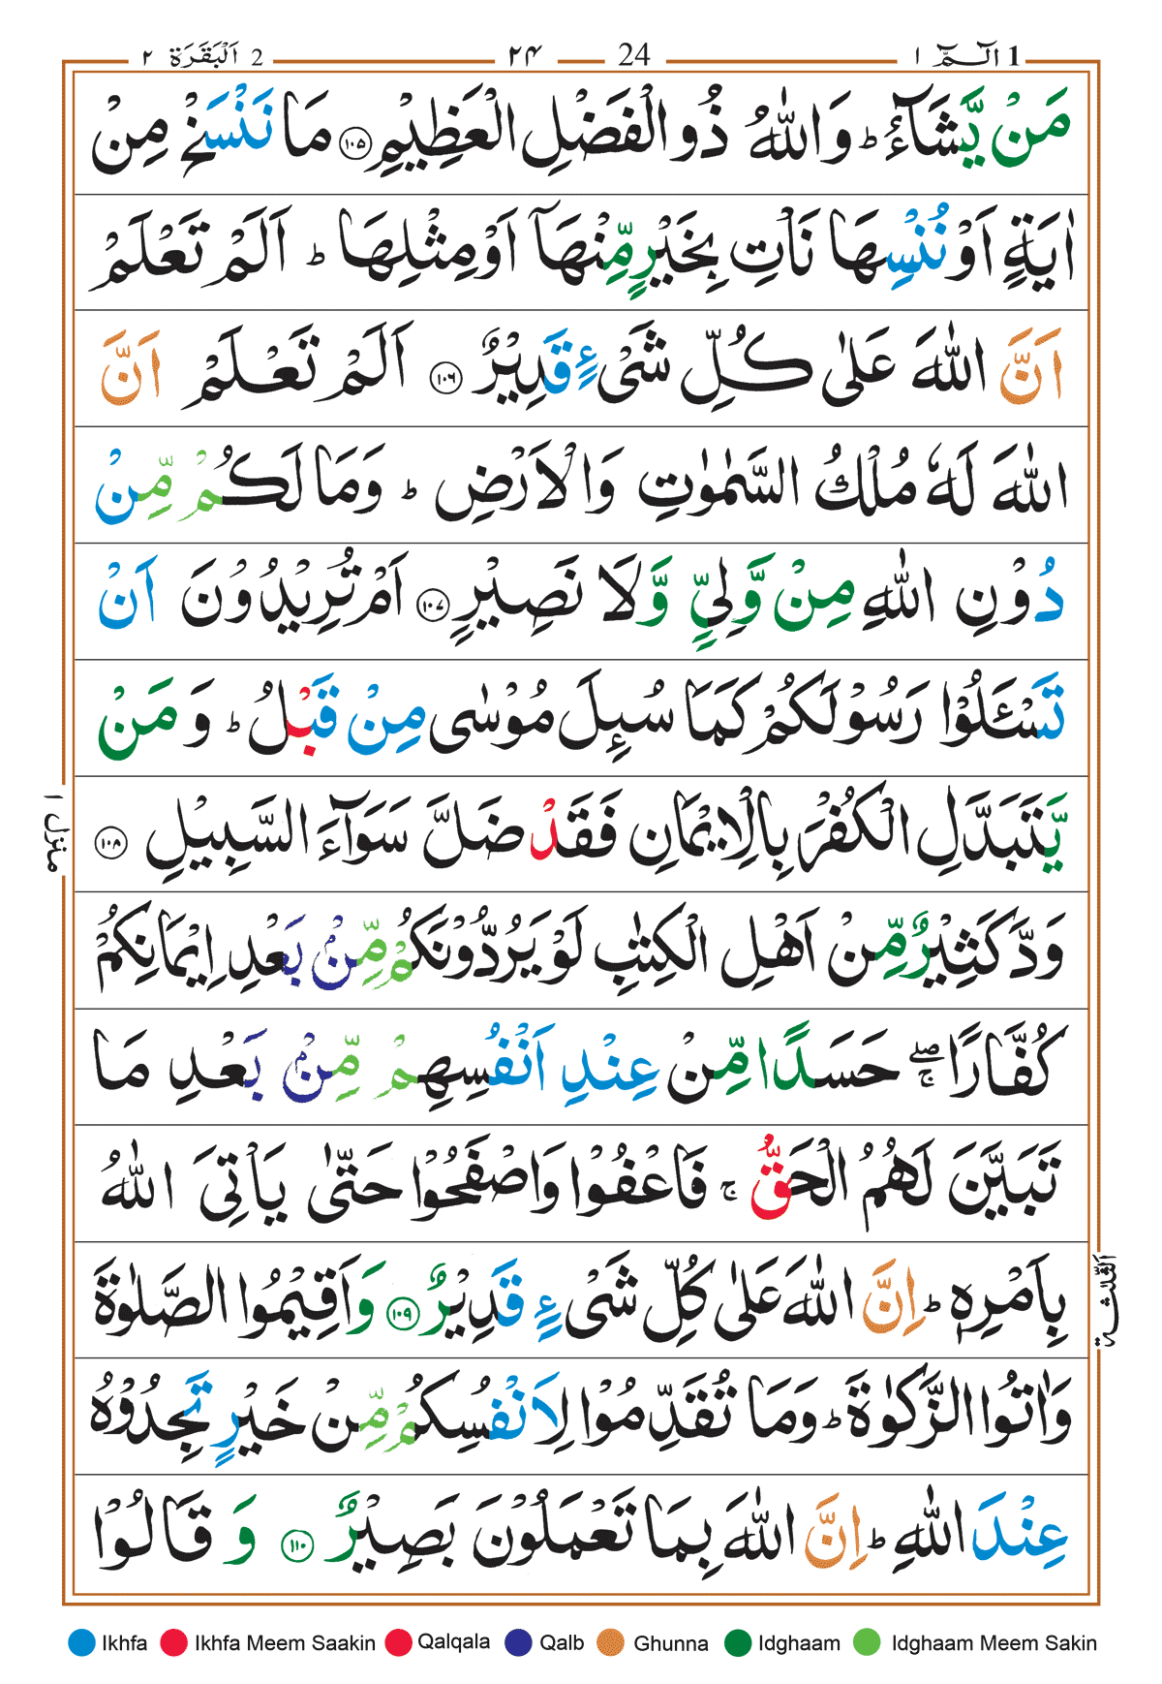 1 الٓـمّٓ ١ 24 ٢٤ 2 اَلْبَقَرَة ٢
مَنْ يَّشَآءُ ؕ وَاللّٰهُ ذُو الْفَضْلِ الْعَظِيْمِ ١٠٥ مَا نَنْسَخْ مِنْ
اٰيَةٍ اَوْ نُنْسِهَا نَاْتِ بِخَيْرٍ مِّنْهَآ اَوْ مِثْلِهَا ؕ اَلَمْ تَعْلَمْ
اَنَّ اللّٰهَ عَلٰى كُلِّ شَىْءٍ قَدِيْرٌ ١٠٦ اَلَمْ تَعْلَمْ اَنَّ
اللّٰهَ لَهٗ مُلْكُ السَّمٰوٰتِ وَالْاَرْضِ ؕ وَمَا لَكُمْ مِّنْ
دُوْنِ اللّٰهِ مِنْ وَّلِىٍّ وَّلَا نَصِيْرٍ ١٠٧ اَمْ تُرِيْدُوْنَ اَنْ
تَسْـَٔلُوْا رَسُوْلَكُمْ كَمَا سُٮِٕلَ مُوْسٰى مِنْ قَبْلُ ؕ وَمَنْ
يَّتَبَدَّلِ الْكُفْرَ بِالْاِيْمَانِ فَقَدْ ضَلَّ سَوَآءَ السَّبِيْلِ ١٠٨
وَدَّ كَثِيْرٌ مِّنْ اَهْلِ الْكِتٰبِ لَوْ يَرُدُّوْنَكُمْ مِّنْۢ بَعْدِ اِيْمَانِكُمْ
كُفَّارًا ۖۚ حَسَدًا مِّنْ عِنْدِ اَنْفُسِهِمْ مِّنْۢ بَعْدِ مَا
تَبَيَّنَ لَهُمُ الْحَقُّ ۚ فَاعْفُوْا وَاصْفَحُوْا حَتّٰى يَاْتِىَ اللّٰهُ
بِاَمْرِهٖ ؕ اِنَّ اللّٰهَ عَلٰى كُلِّ شَىْءٍ قَدِيْرٌ ١٠٩ وَاَقِيْمُوا الصَّلٰوةَ
وَاٰتُوا الزَّكٰوةَ ؕ وَمَا تُقَدِّمُوْا لِاَنْفُسِكُمْ مِّنْ خَيْرٍ تَجِدُوْهُ
عِنْدَ اللّٰهِ ؕ اِنَّ اللّٰهَ بِمَا تَعْمَلُوْنَ بَصِيْرٌ ١١٠ وَقَالُوْا
منزل ١
الثلٰثة
Ikhfa Ikhfa Meem Saakin Qalqala Qalb Ghunna Idghaam Idghaam Meem Sakin